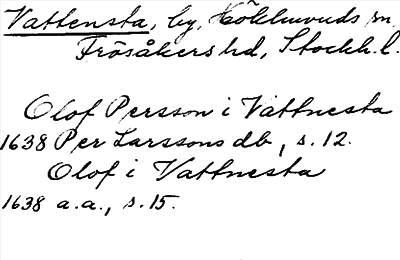 Vattensta, by, Hökhuvuds sn,
Frösåkers hd, Stockh. l.
Olof Persson i Vattnesta
1638 Per Larssons db, s. 12.
Olof i Vattnesta
1638 a.a., s. 15.